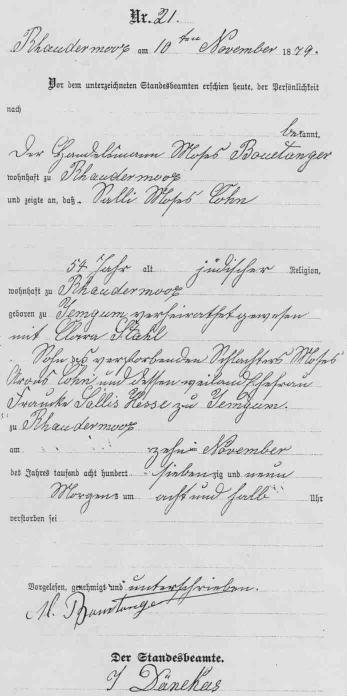 Nr. 21.
Rhaudermoor am 10ten November 1879.
Vor dem unterzeichneten Standesbeamten erschien heute, der Persönlichkeit
nach
bekannt,
Der Handelsmann Moses
wohnhaft zu Rhaudermoor
und zeigte an, daß Salli Moses Cohn
54 Jahr alt jüdischer Religion,
wohnhaft zu Rhaudermoor
geboren zu Jemgum verheirathet gewesen
mit Clara Stahl
Sohn des verstorbenden Schlachters Moses
Cohn und dessen weiland Ehefrau
Frauke Sallis Hesse zu Jemgum.
zu Rhaudermoor
am zehn November
des Jahres tausend acht hundert siebenzig und neun
Morgens um acht und halb Uhr
verstorben sei
Vorgelesen, genehmigt und unterschrieben.
M.
Der Standesbeamte.
J Dänekas